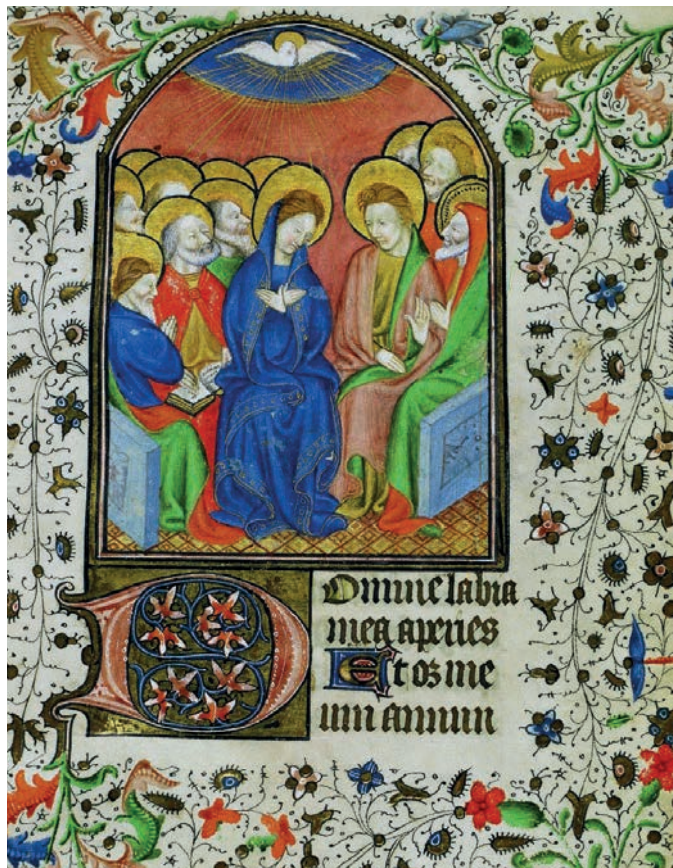 Domine labia
mea aperies
Et os me
um annun